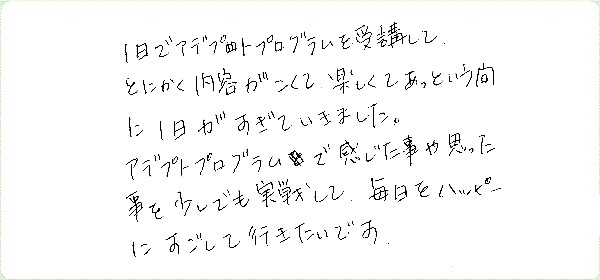 1日でアデプトプログラムを受講して、
とにかく内容がこくて、楽しくてあっという間
に1日がすぎていきました。
アデプトプログラムで感じた事や思った
事を少しでも実戦して、毎日をハッピー
にすごして行きたいです。